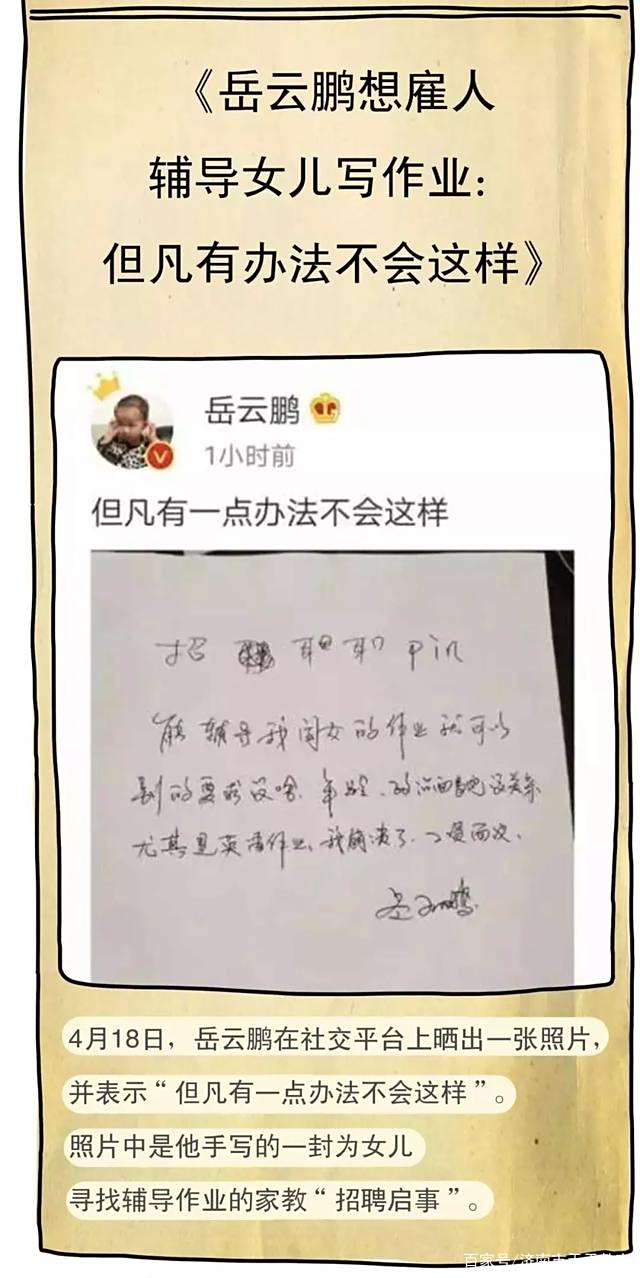 《岳云鹏想雇人
辅导女儿写作业:
但凡有办法不会这样》
岳云鹏
1小时前
但凡有一点办法不会这样
招 耳只 耳卩
能辅导我闺女的作业就可以
别的要求没啥. 年龄. 没关系
尤其是英语作业, 我崩溃了. 面议.
岳云鹏
4月18日，岳云鹏在社交平台上晒出一张照片，
并表示“但凡有一点办法不会这样”。
照片中是他手写的一封为女儿
寻找辅导作业的家教“招聘启事”。